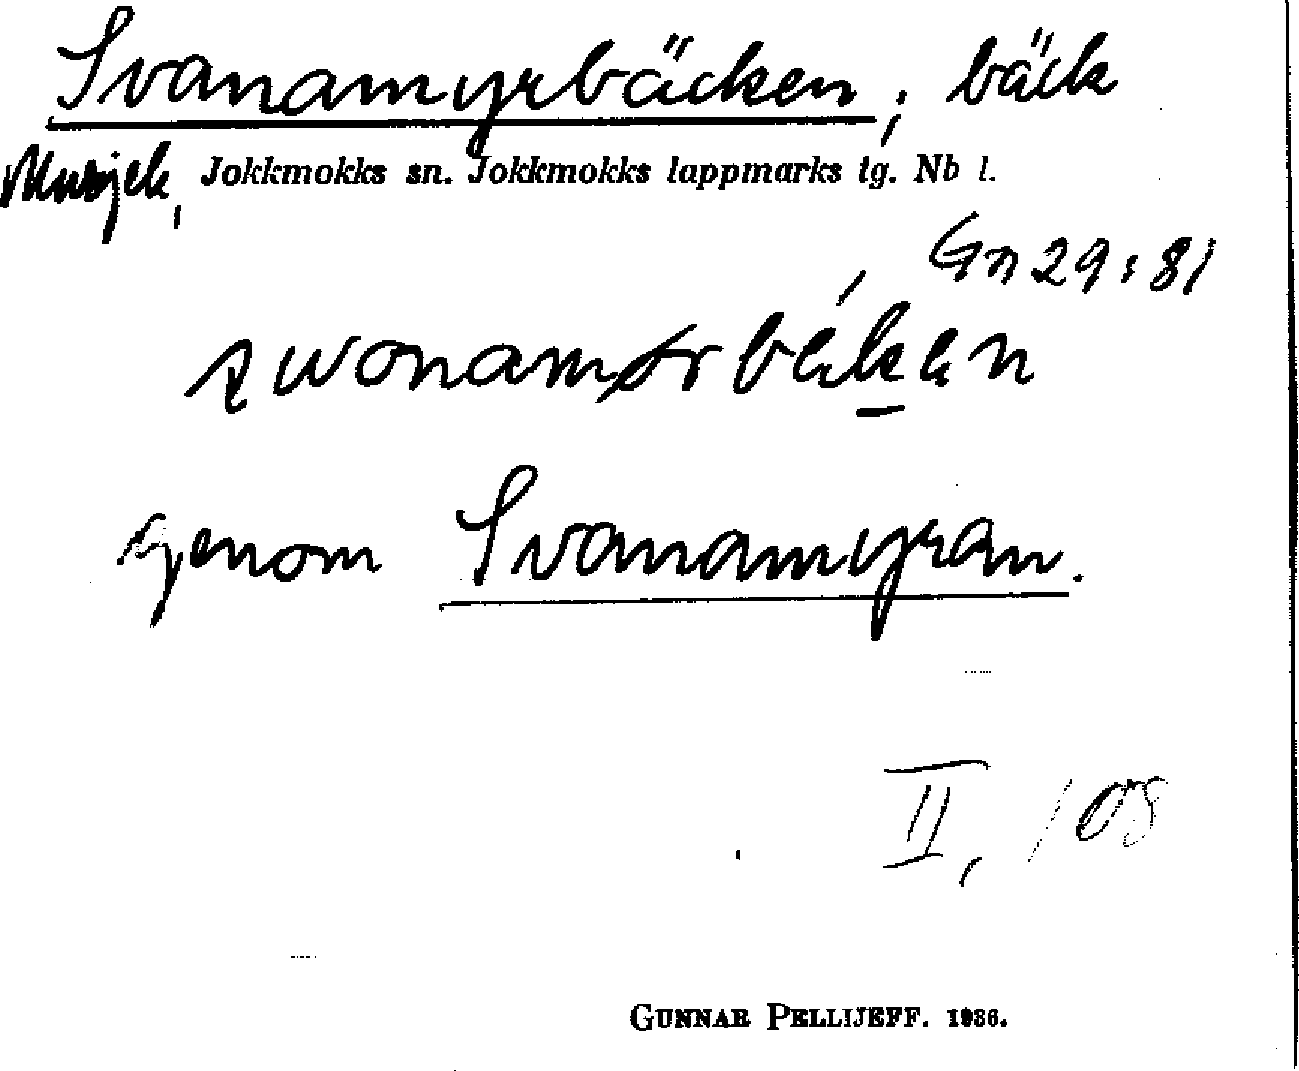 Svanamyrbäcken, bäck
Murjek, Jokkmokks sn. Jokkmokks lappmarks tg. Nb l.
Gn 29:81
genom Svanamyran.
II, 108
GUNNAR PELLIJEFF. 1936.